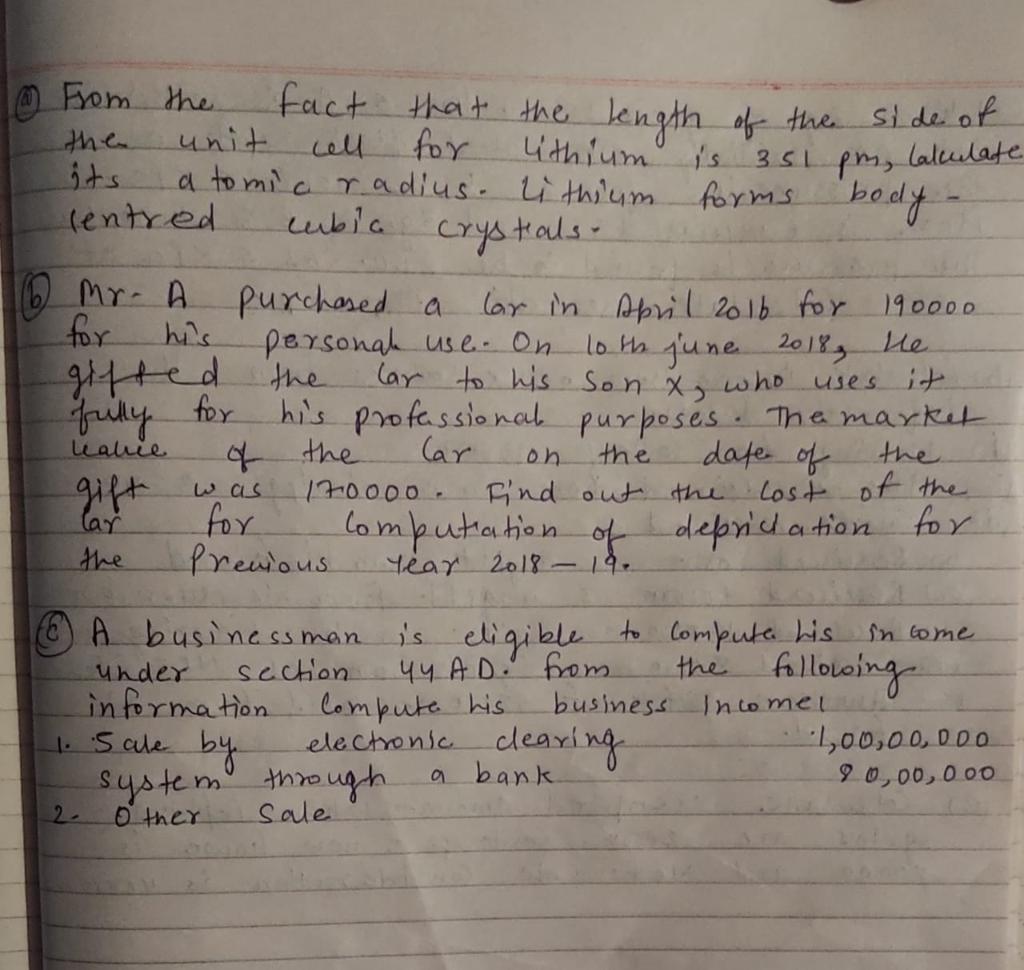 (a) From the fact that the length of the side of
the unit cell for Lithium is 351 pm, Calculate
its atomic radius. Lithium forms body-
centred cubic crystals.
(b) Mr. A purchased a Car in April 2016 for 190000
for his personal use. On 10th june 2018, He
gifted the Car to his Son X, who uses it
fully for his professional purposes. The market
value of the Car on the date of the
gift was 170000. Find out the Cost of the
Car for Computation of depriciation for
the Previous Year 2018-19.
(c) A businessman is eligible to Compute his income
under section 44 AD. from the following
information Compute his business Income!
1. Sale by electronic clearing 1,00,00,000
system through a bank 90,00,000
2. Other Sale